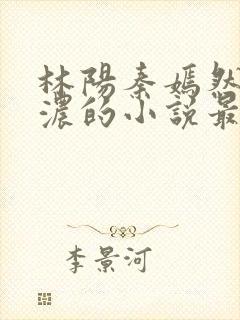 林陽秦嫣然
濃的小說最
李景河